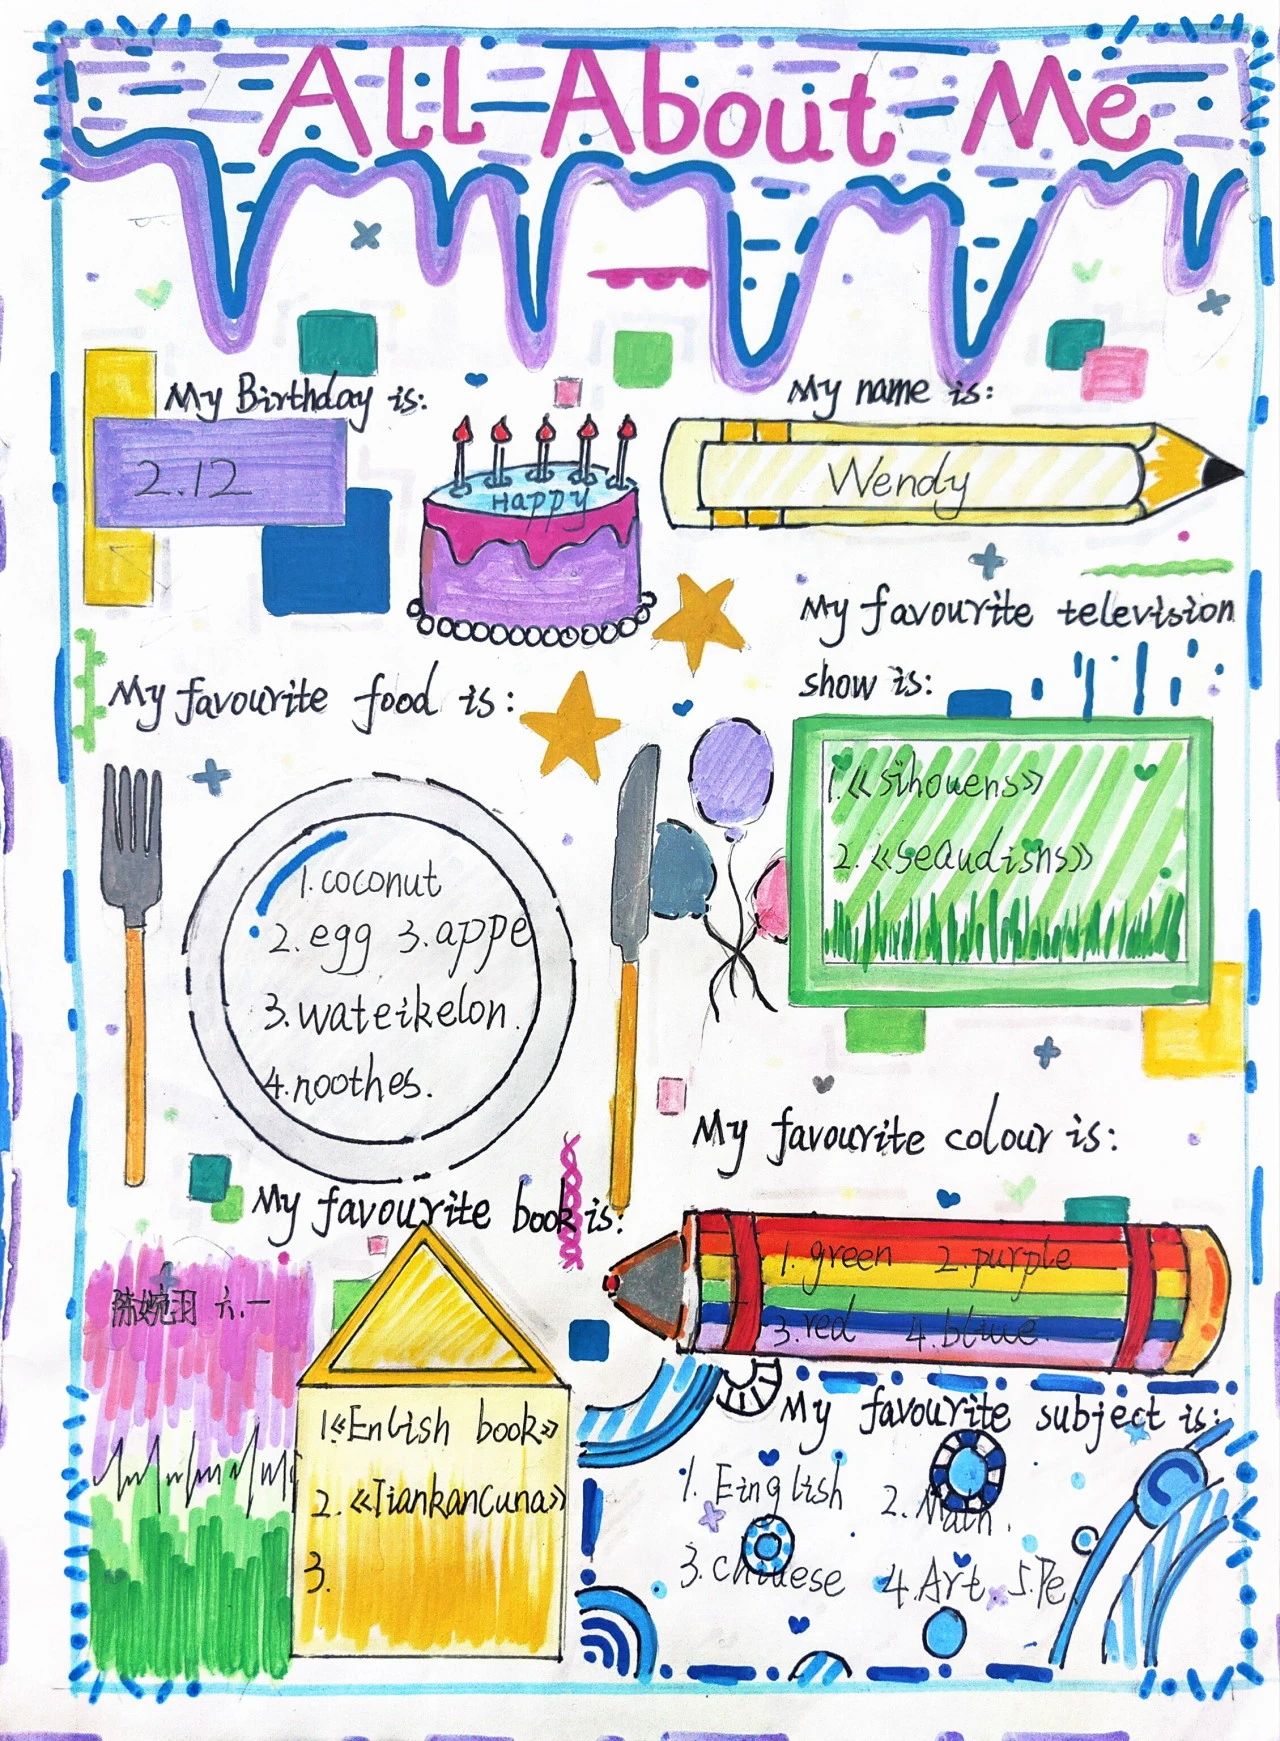 All About Me
My Birthday is:
2.12
Happy
My name is:
Wendy
My favourite television
show is:
1.《sihouens》
2.《seaudisns》
My favourite food is:
1.coconut
2.egg 3.appe
3.wateikelon.
4.noothes.
My favourite colour is:
1.green 2.purple
3.red 4.bluue.
My favourite book is:
陈婉羽 六.一
1《Enlish book》
2.《Tiankancuna》
3.
My favourite subject is:
1. Einglish 2.Math.
3.chinese 4.Art 5.Pe